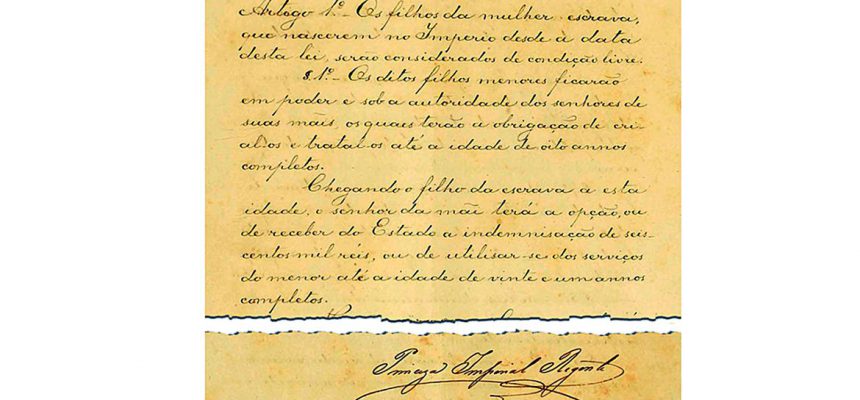 Artogo 1º.- Os filhos da mulher escrava,
que nascerem no Imperio desde a data
desta lei, serão considerados de condição livre.
§.1º- Os ditos filhos menores ficarão
em poder e sob a autoridade dos senhores de
suas mãis, os quaes terão a obrigação de cri-
al-os e tratal-os até a idade de oito annos
completos.
Chegando o filho da escrava a esta
idade, o senhor da mãi terá a opção, ou
de receber do Estado a indemnisação de seis-
centos mil réis, ou de utilisar-se dos serviços
do menor até a idade de vinte e um annos
completos.
Princeza Imperial Regente